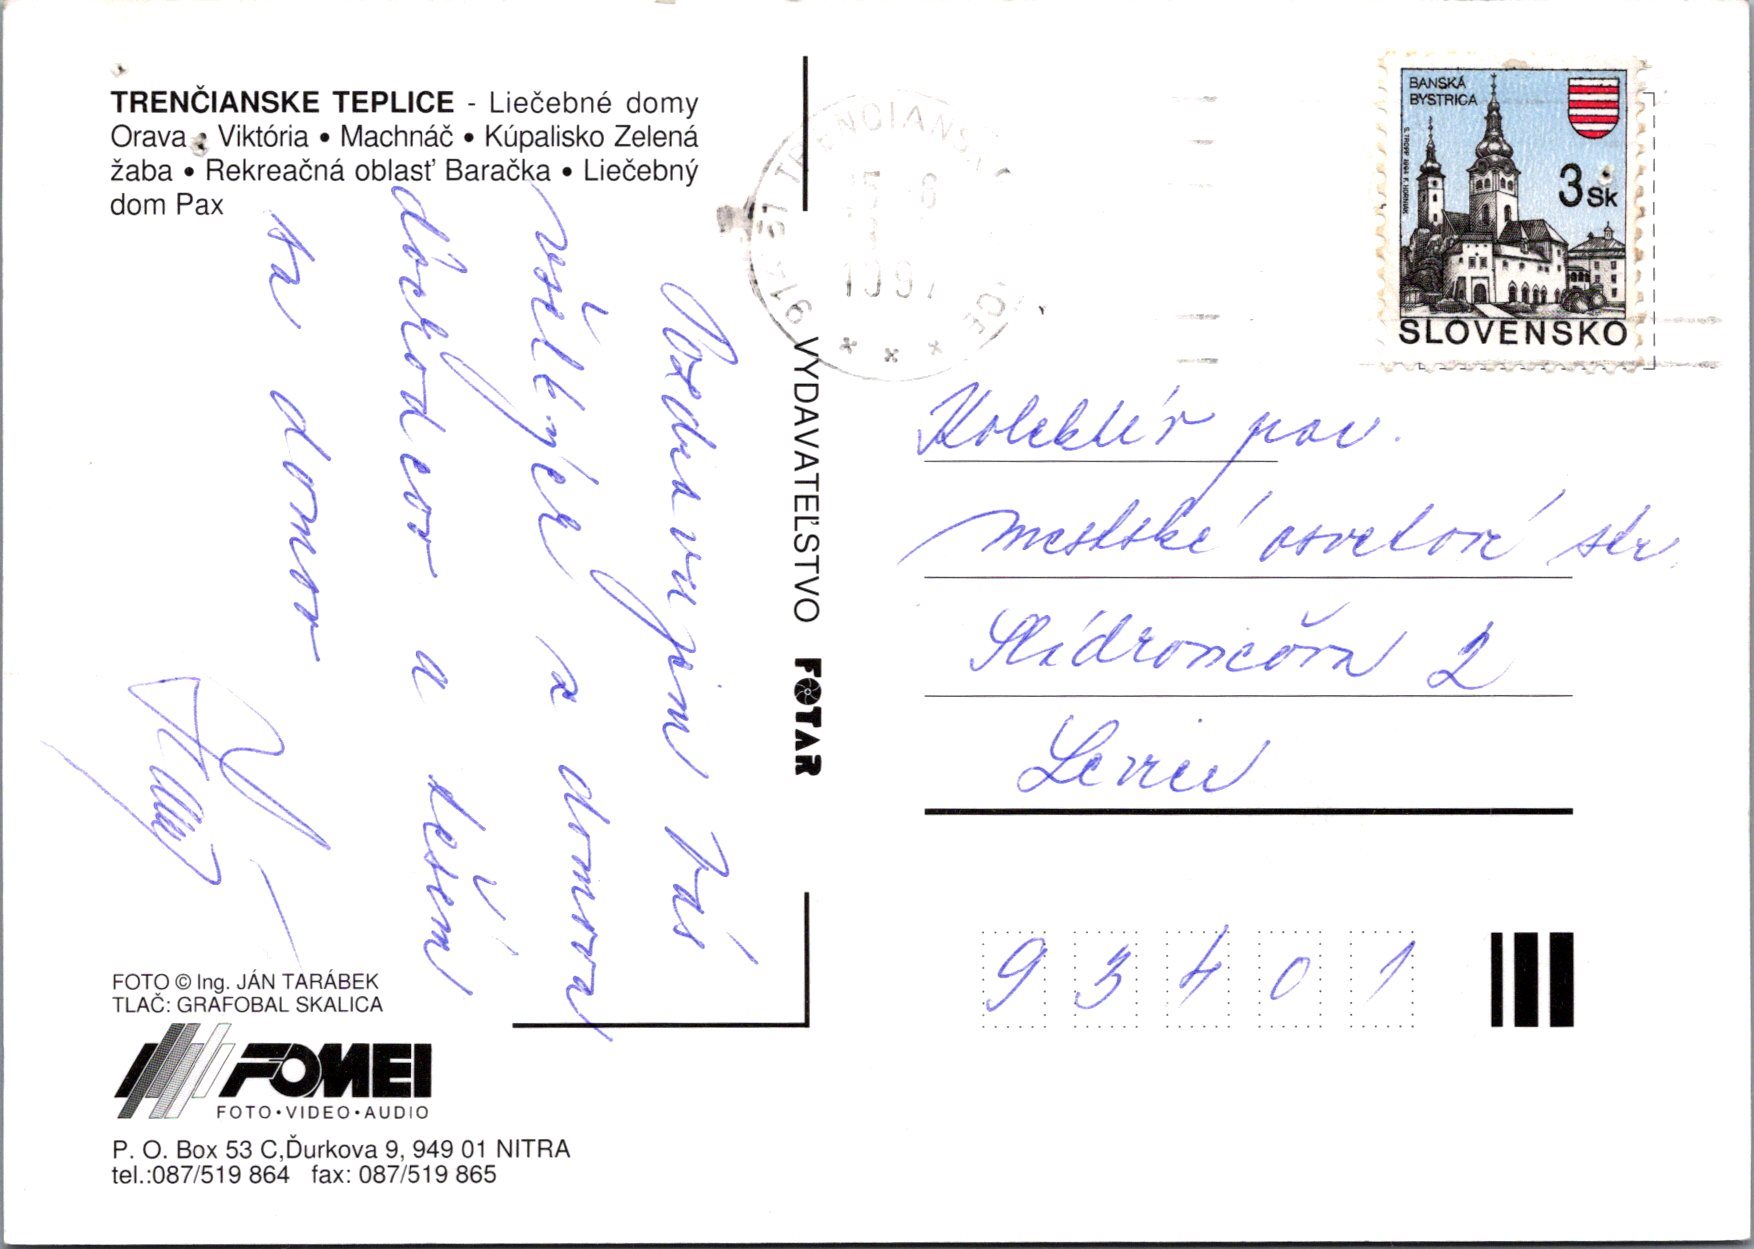 TRENČIANSKE TEPLICE - Liečebné domy
Orava • Viktória • Machnáč • Kúpalisko Zelená
žaba • Rekreačná oblasť Baračka • Liečebný
dom Pax
Pozdravujem Vás
všelijak z domova
dôchodcov a teším
sa domov
FOTO © Ing. JÁN TARÁBEK
TLAČ: GRAFOBAL SKALICA
FOMEI
FOTO•VIDEO•AUDIO
P. O. Box 53 C,Ďurkova 9, 949 01 NITRA
tel.:087/519 864 fax: 087/519 865
VYDAVATEĽSTVO FOTAR
TRENČIANSKE
BANSKÁ
BYSTRICA
3 Sk
SLOVENSKO
Kolektív prac.
mestské osvetové str.
Sládkovičova 2
Levice
93401